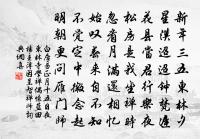 新年三五東林夕
星漢迢迢鐘梵遲
花縣當君行樂夜
松房是我坐禪時
忽看月滿還相憶
始歎春來自不知
不覺定中微念起
明朝更問雁門師
白居易正月十五日夜
東林寺學禪偶懷藍田
楊主簿因呈智禪師